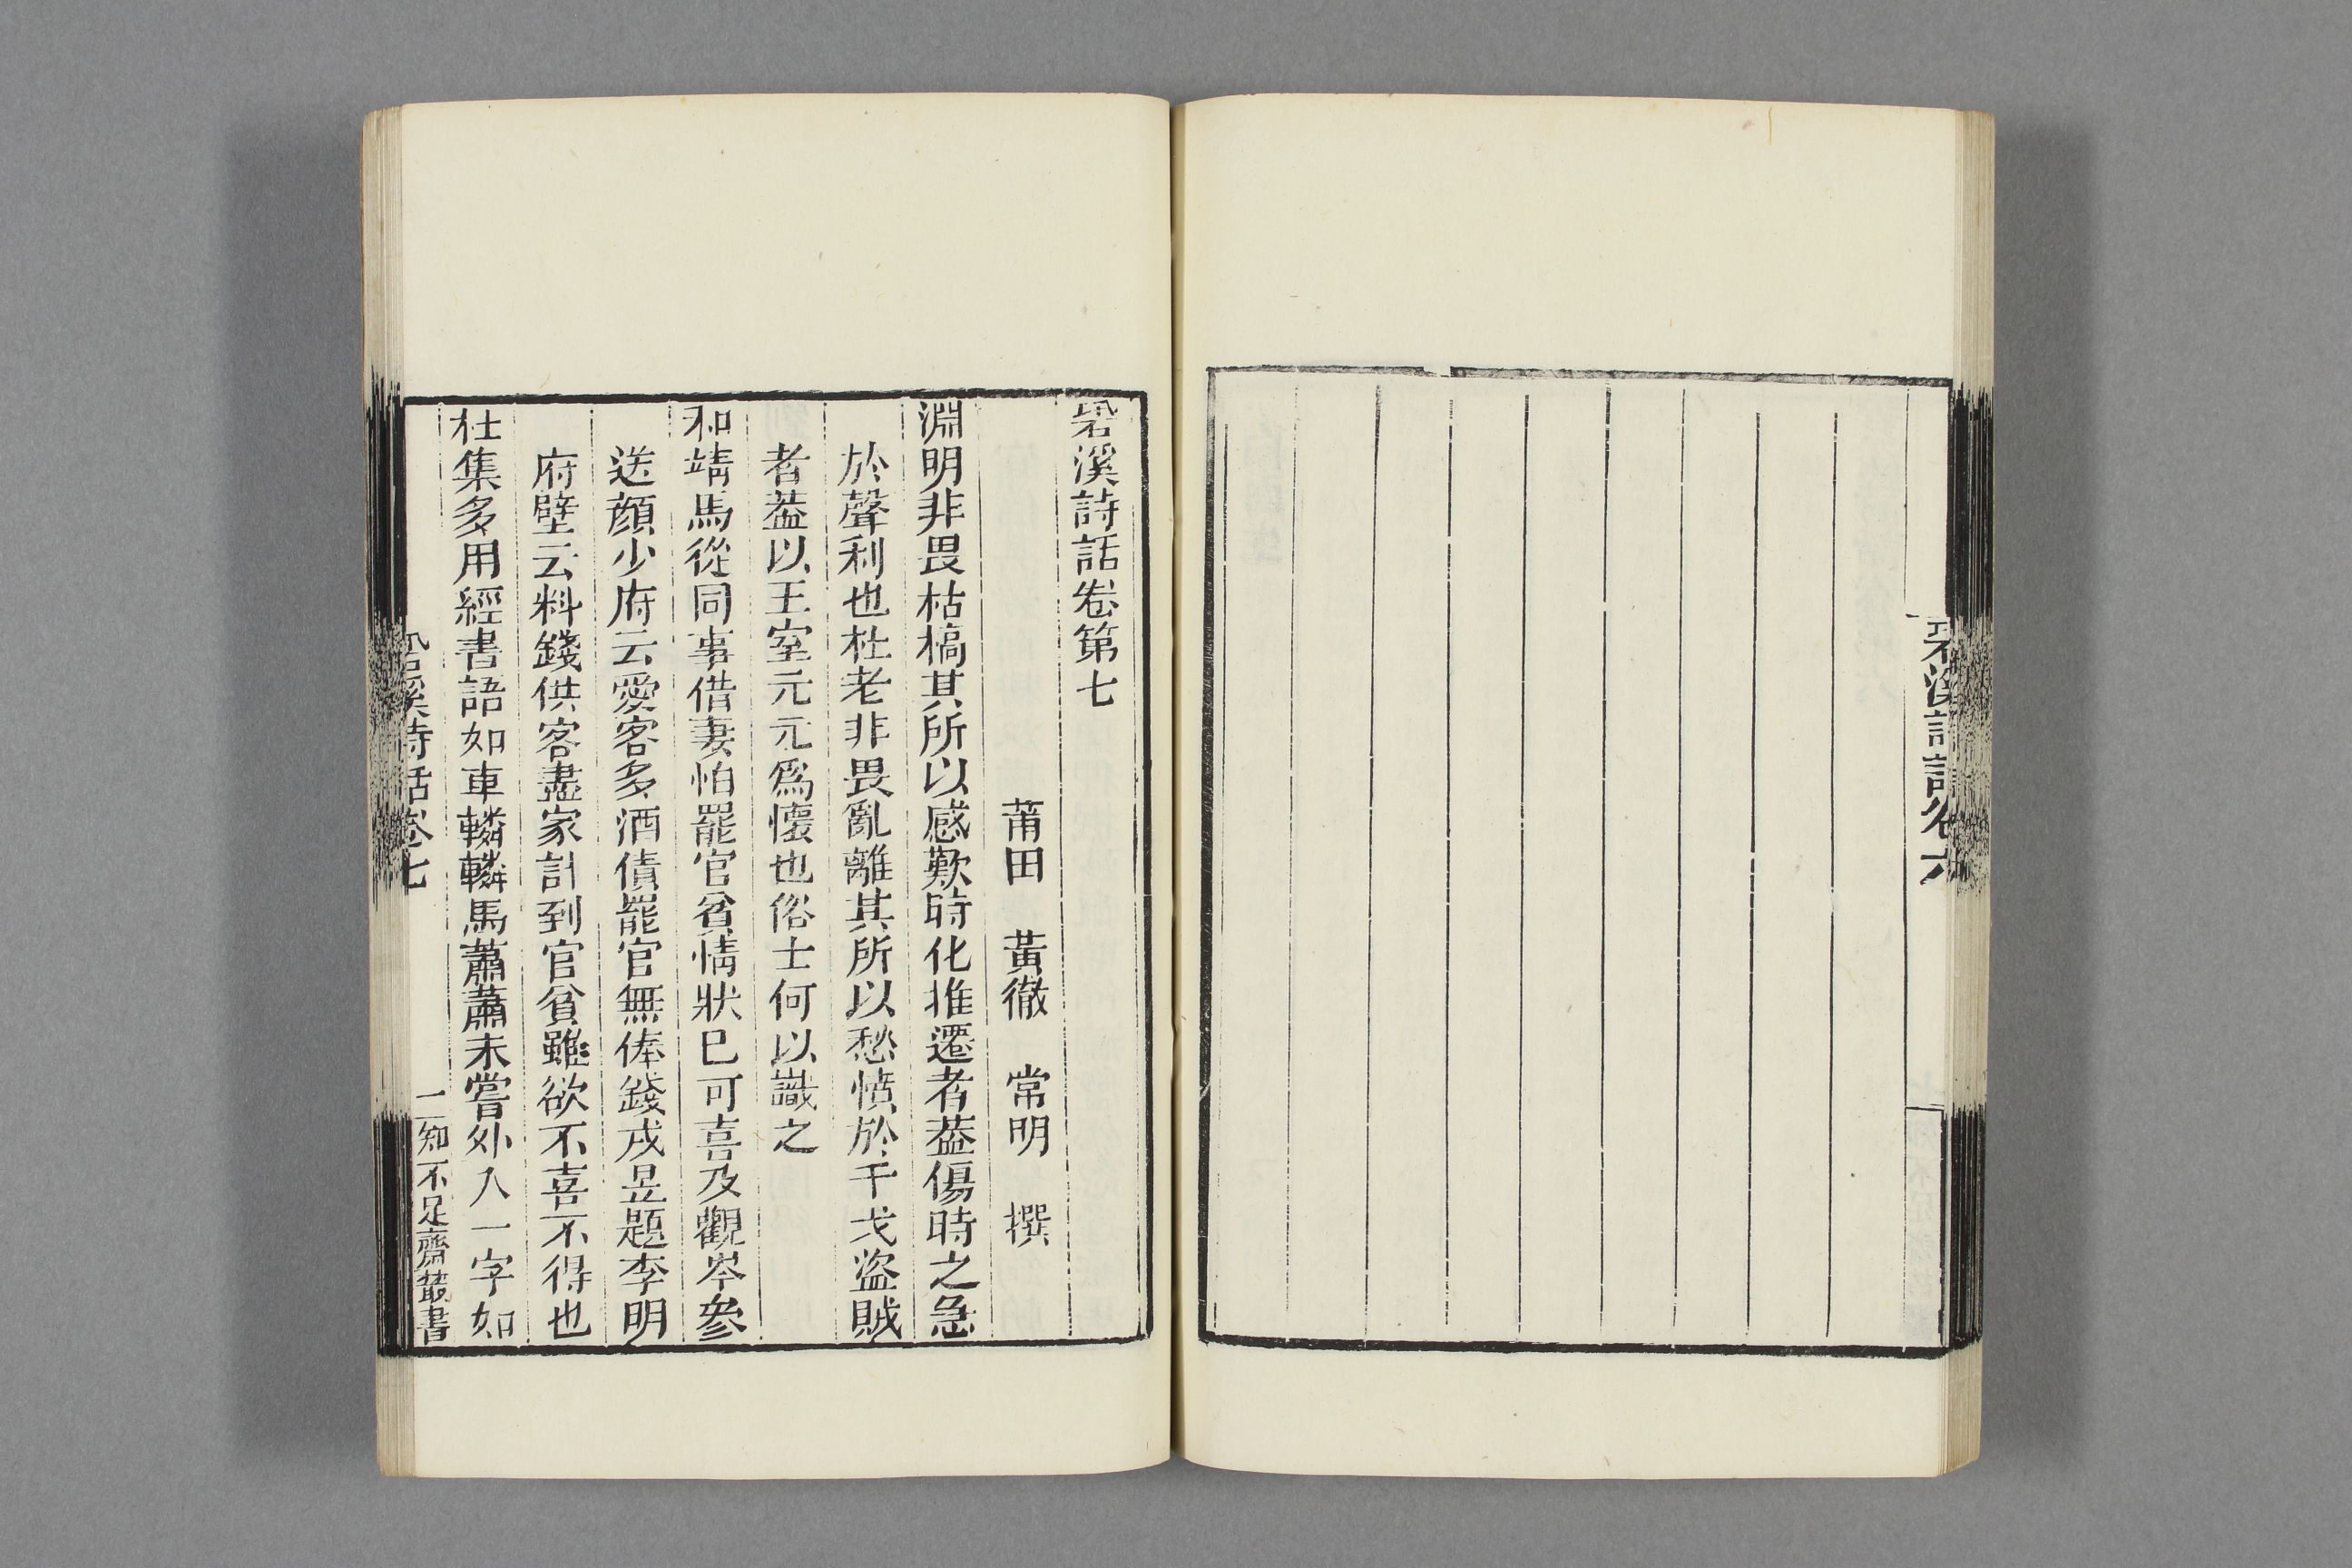 䂬溪詩話卷六
䂬溪詩話卷第七
莆田 黃徹 常明 撰
淵明非畏枯槁其所以感歎時化推遷者葢傷時之急
於聲利也杜老非畏亂離其所以愁憤於干戈盜賊
者葢以王室元元爲懷也俗士何以識之
和靖馬從同事借妻怕罷官貧情狀巳可喜及觀岑參
送顏少府云愛客多酒債罷官無俸錢戎昱題李明
府壁云料錢供客盡家計到官貧雖欲不喜不得也
杜集多用經書語如車轔轔馬蕭蕭未嘗外入一字如
䂬溪詩話卷七
一知不足齋叢書